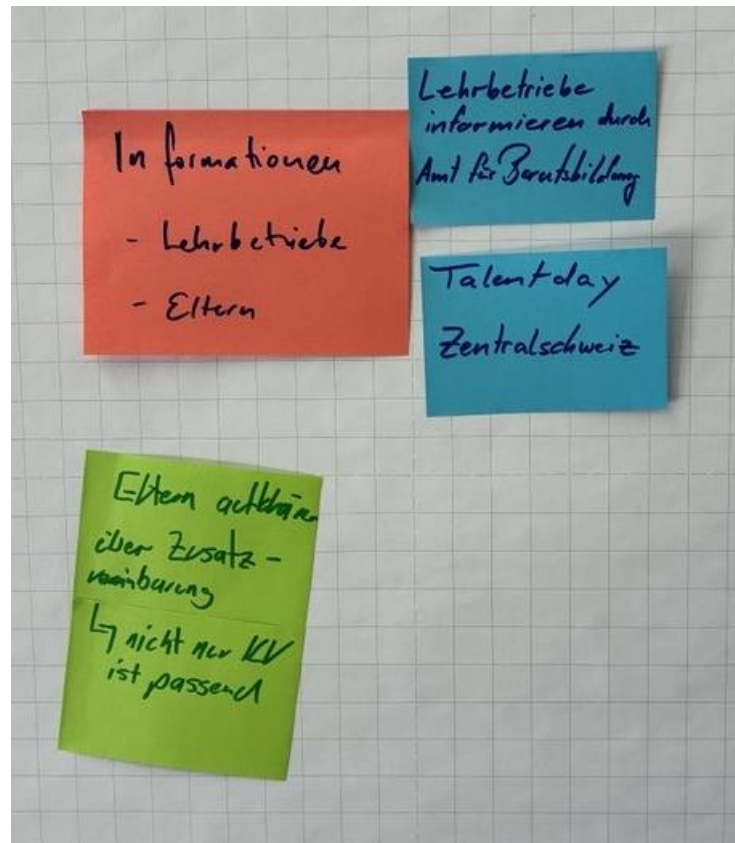 Informationen
- Lehrbetriebe
- Eltern
Lehrbetriebe
informieren durch
Amt für Berufsbildung
Talentday
Zentralschweiz
Eltern aufklären
über Zusatz-
vereinbarung
↳ nicht nur KV
ist passend